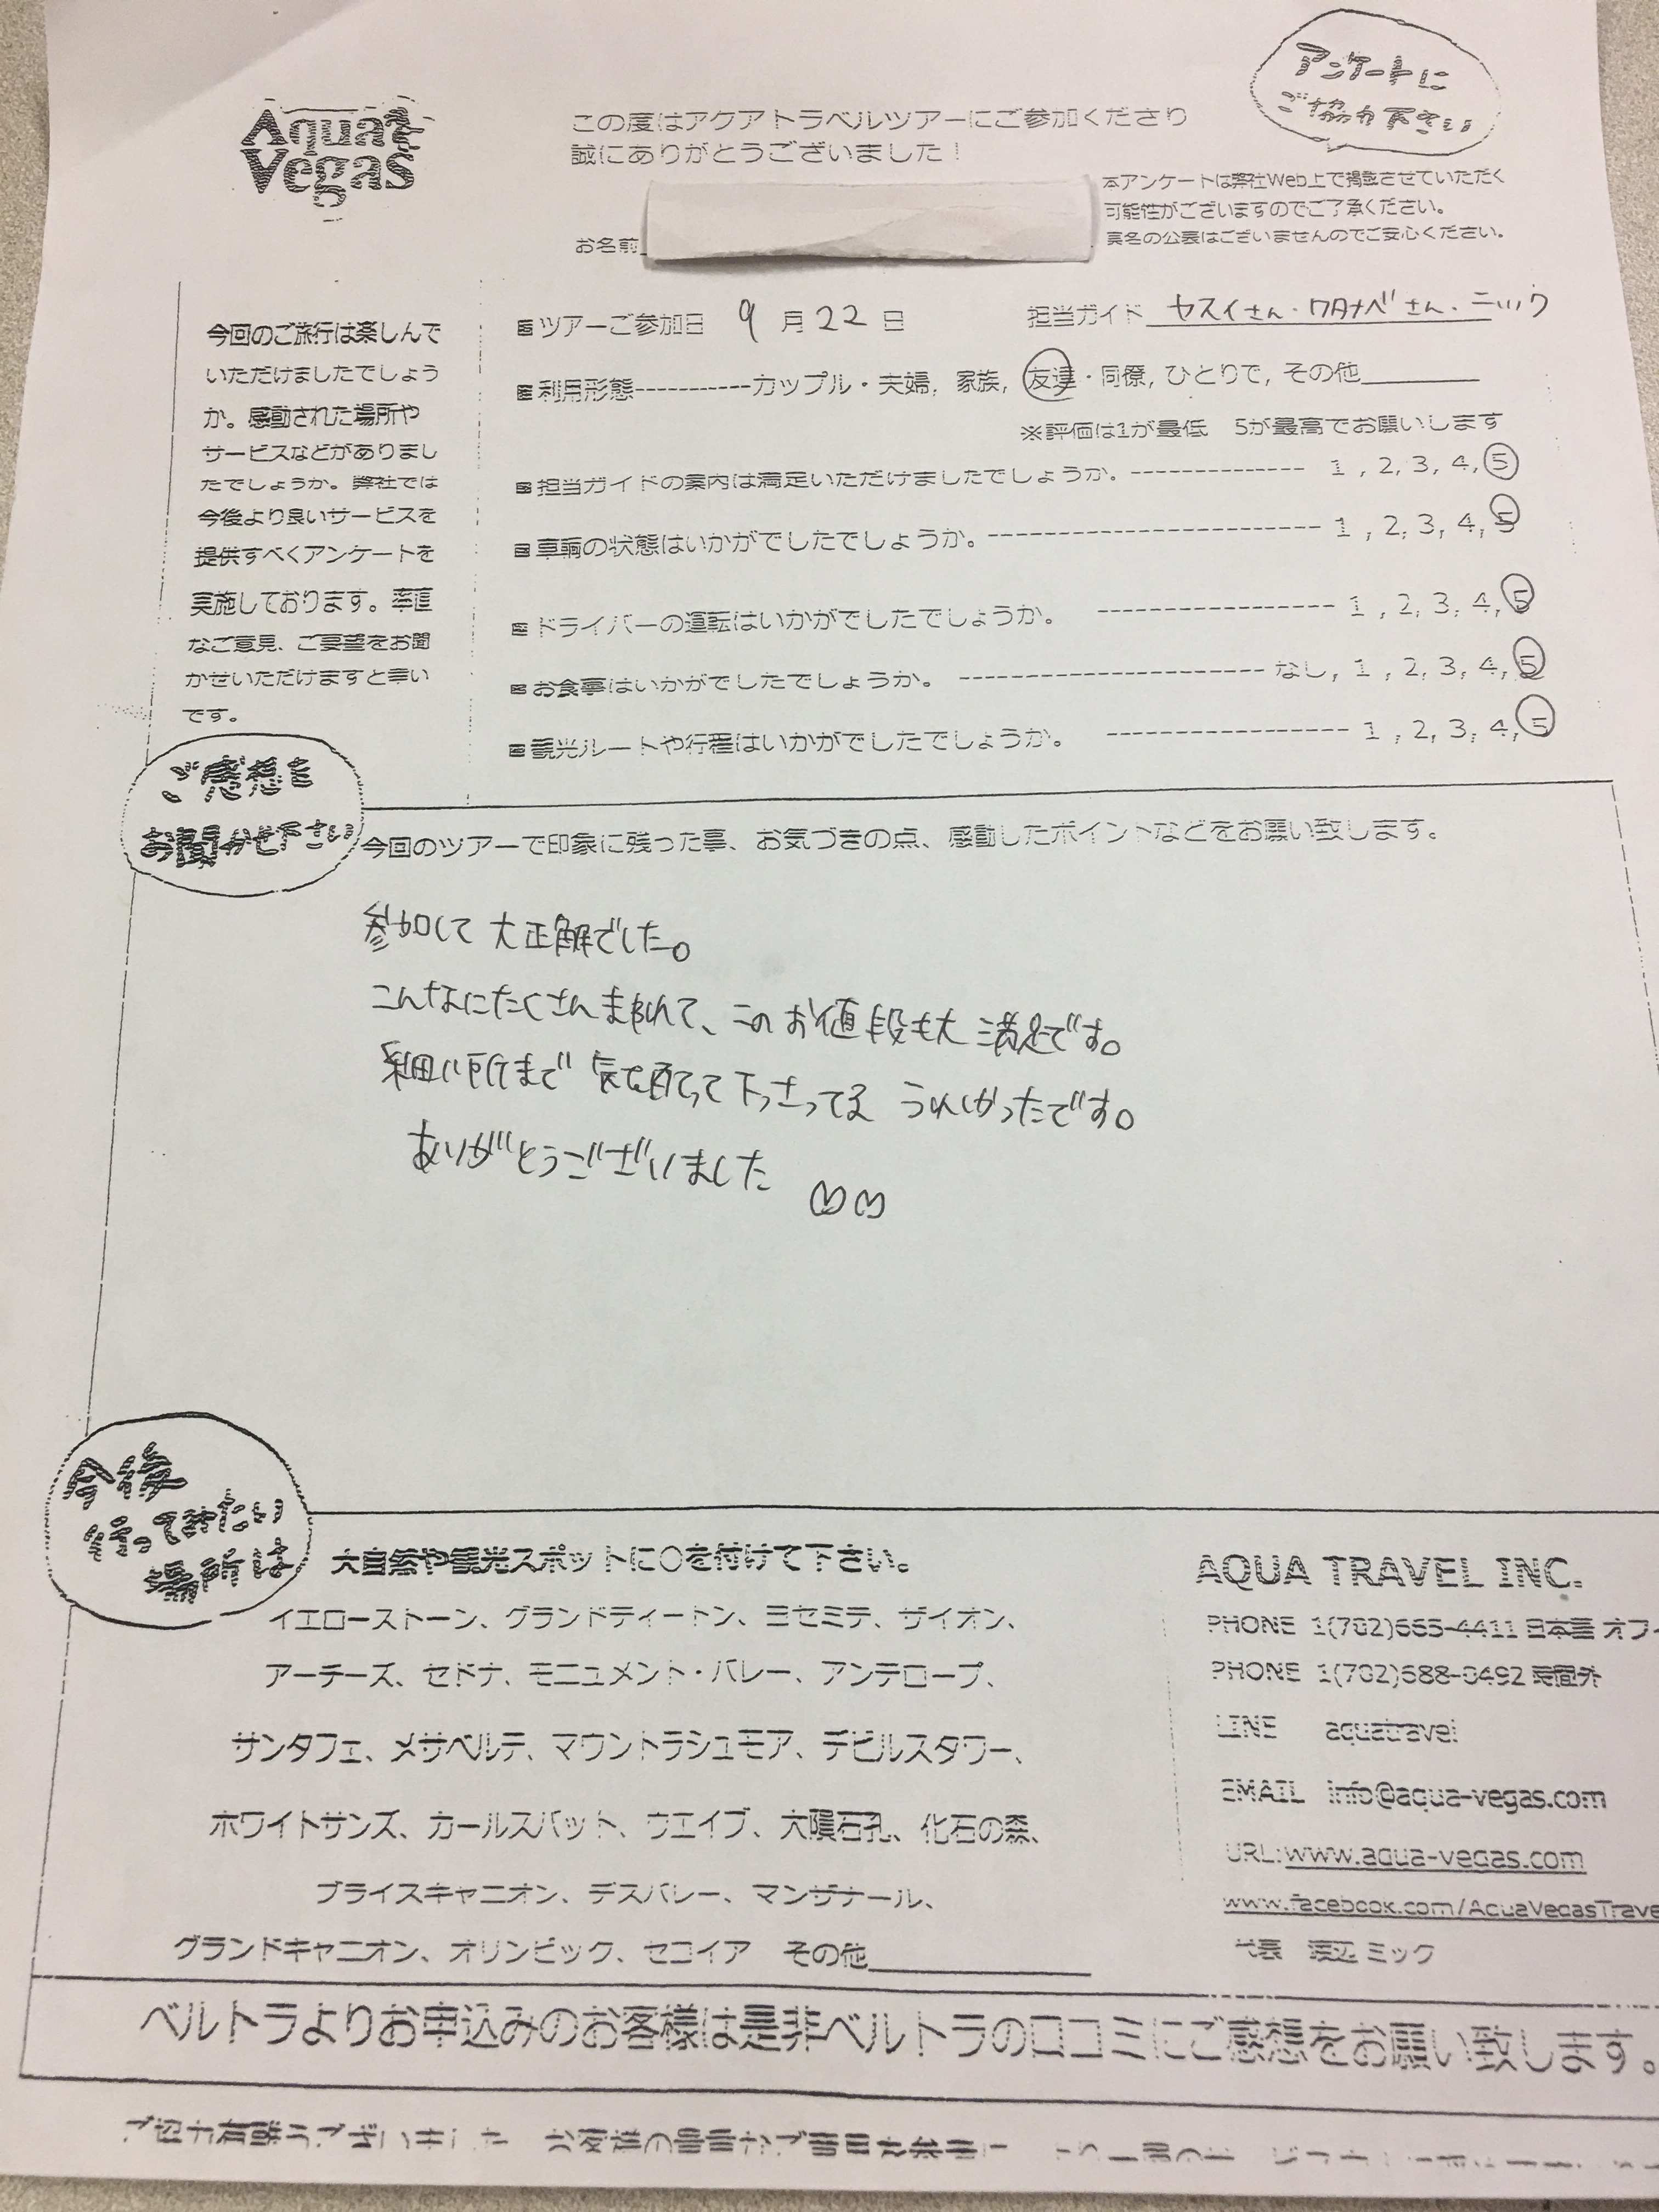 Aqua Vegas
この度はアクアトラベルツアーにご参加くださり
誠にありがとうございました！
アンケートに
ご協力下さい
本アンケートは弊社Web上で掲載させていただく
可能性がございますのでご了承ください。
実名の公表はございませんのでご安心ください。
お名前
今回のご旅行は楽しんで
いただけましたでしょう
か。感動された場所や
サービスなどがありまし
たでしょうか。弊社では
今後より良いサービスを
提供すべくアンケートを
実施しております。率直
なご意見、ご要望をお聞
かせいただけますと幸い
です。
ツアーご参加日 9月22日 担当ガイド ヤスイさん・ワタナベさん・ニック
利用形態-----------カップル・夫婦, 家族, 友達・同僚, ひとりで, その他
※評価は1が最低 5が最高でお願いします
担当ガイドの案内は満足いただけましたでしょうか。-------------- 1, 2, 3, 4, 5
車輌の状態はいかがでしたでしょうか。---------------------------- 1, 2, 3, 4, 5
ドライバーの運転はいかがでしたでしょうか。 ----------------- 1, 2, 3, 4, 5
お食事はいかがでしたでしょうか。 ---------------------- なし, 1, 2, 3, 4, 5
観光ルートや行程はいかがでしたでしょうか。 ----------------- 1, 2, 3, 4, 5
ご感想を
お聞かせ下さい
今回のツアーで印象に残った事、お気づきの点、感動したポイントなどをお願い致します。
参加して大正解でした。
こんなにたくさんまわれて、このお値段も大満足です。
細い所まで気を配って下さってる うれしかったです。
ありがとうございました ♡♡
今後
行ってみたい
場所は
大自然や観光スポットに○を付けて下さい。
イエローストーン、グランドティートン、ヨセミテ、ザイオン、
アーチーズ、セドナ、モニュメント・バレー、アンテロープ、
サンタフェ、メサベルデ、マウントラシュモア、デビルスタワー、
ホワイトサンズ、カールスバット、ウエイブ、大隕石孔、化石の森、
ブライスキャニオン、デスバレー、マンザナール、
グランドキャニオン、オリンピック、セコイア その他
AQUA TRAVEL INC.
PHONE 1(702)665-4411 日本語 オフィ
PHONE 1(702)688-0492 時間外
LINE aquatravel
EMAIL info@aqua-vegas.com
URL:www.aqua-vegas.com
www.facebook.com/AquaVegasTrave
代表 渡辺 ミック
ベルトラよりお申込みのお客様は是非ベルトラの口コミにご感想をお願い致します。
ご協力有難うございました お客様の貴重なご意見を参考に